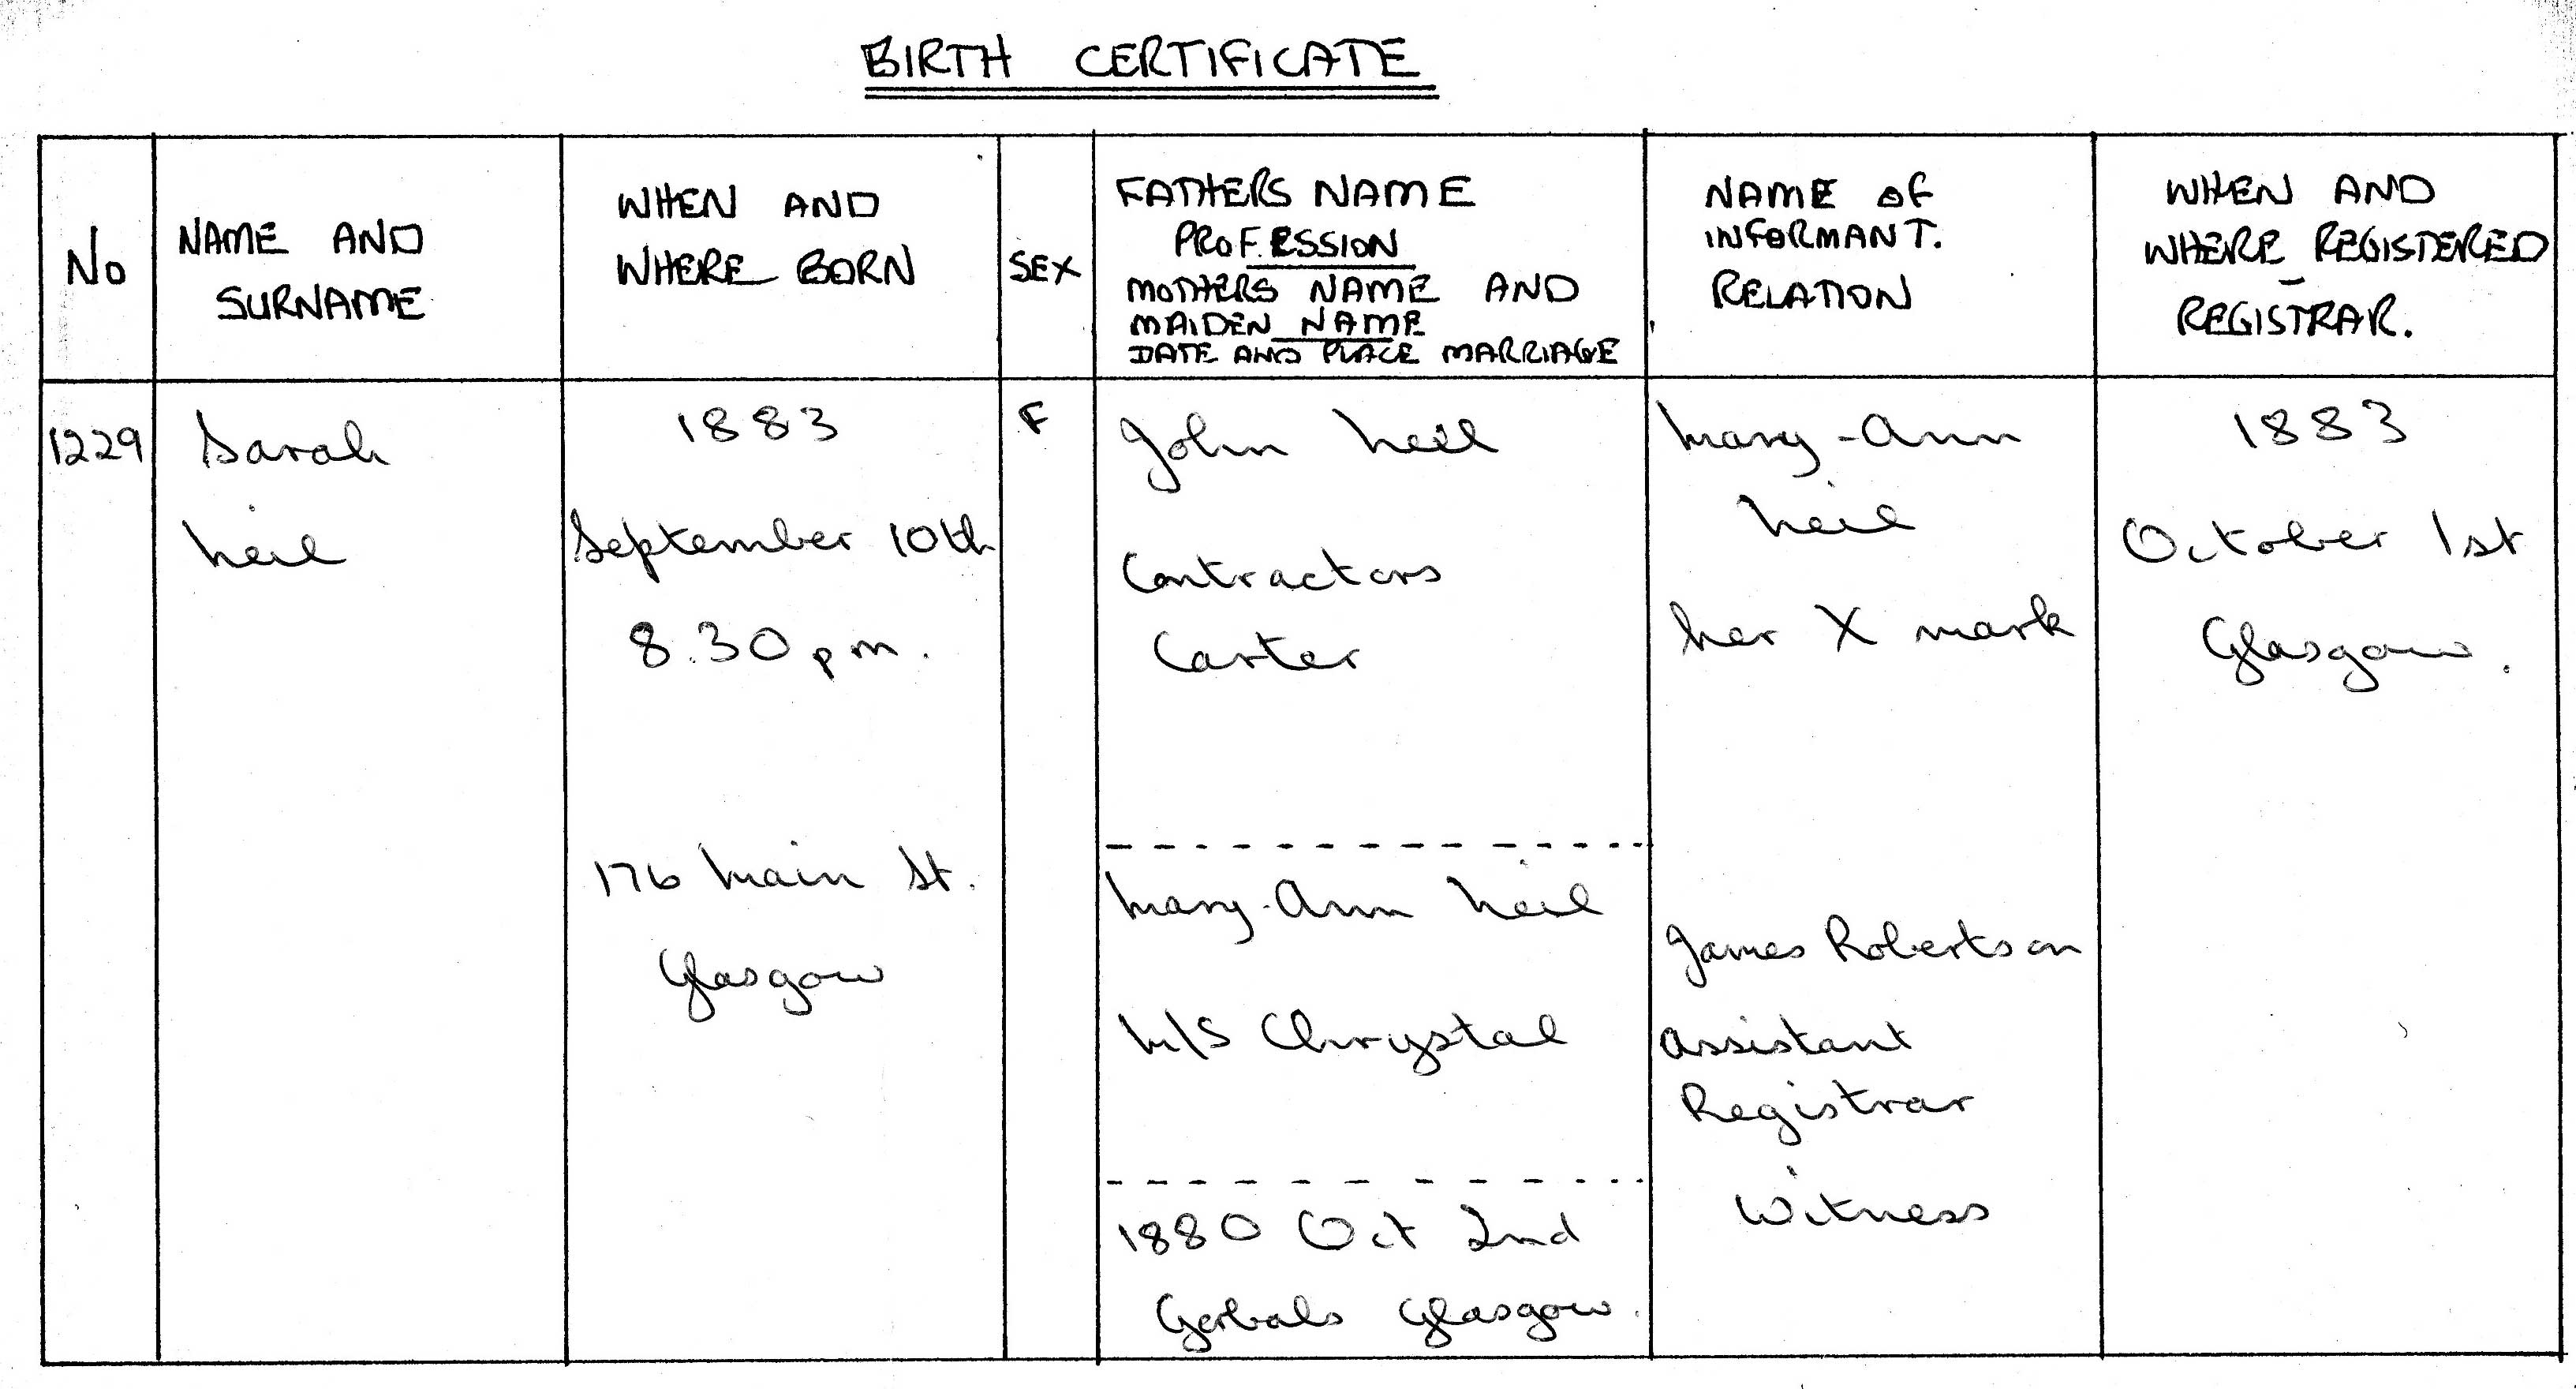 BIRTH CERTIFICATE
No
NAME AND
SURNAME
WHEN AND
WHERE BORN
SEX
FATHERS NAME
PROFESSION
MOTHERS NAME AND
MAIDEN NAME
DATE AND PLACE MARRIAGE
NAME OF
INFORMANT.
RELATION
WHEN AND
WHERE REGISTERED
REGISTRAR.
1229
Sarah
Neil
1883
September 10th
8.30 pm.
176 Main St.
Glasgow
F
John Neil
Contractors
Carter
Mary-Ann Neil
M/S Chrystal
1880 Oct 2nd
Gorbals Glasgow.
Mary-Ann
Neil
her X mark
James Robertson
Assistant
Registrar
Witness
1883
October 1st
Glasgow.